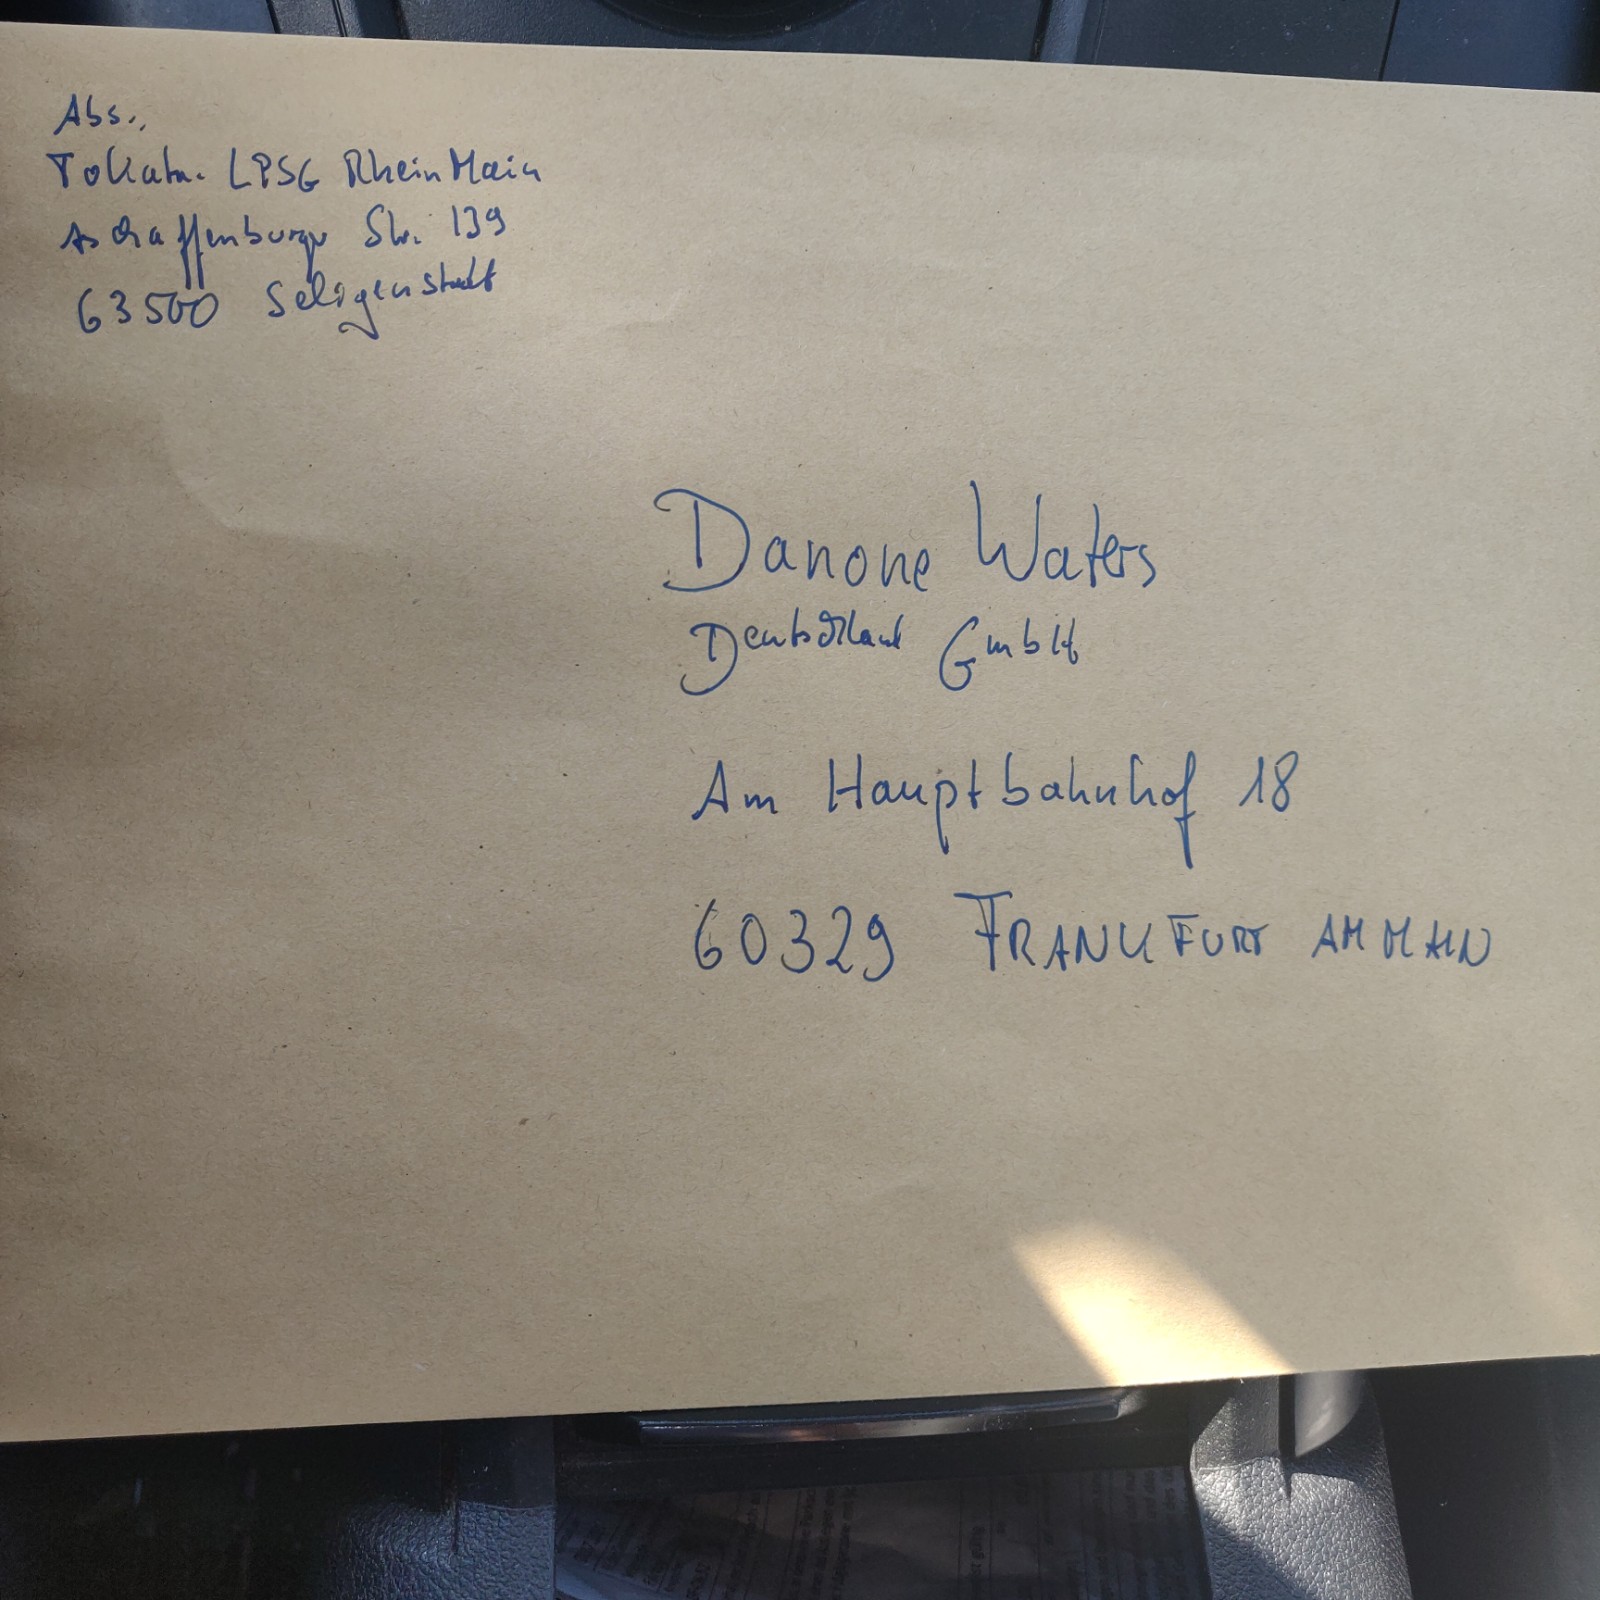 Abs.,
LPSG RheinMain
Aschaffenburger Str. 139
63500 Seligenstadt
Danone Waters
Deutschland GmbH
Am Hauptbahnhof 18
60329 FRANKFURT AM MAIN